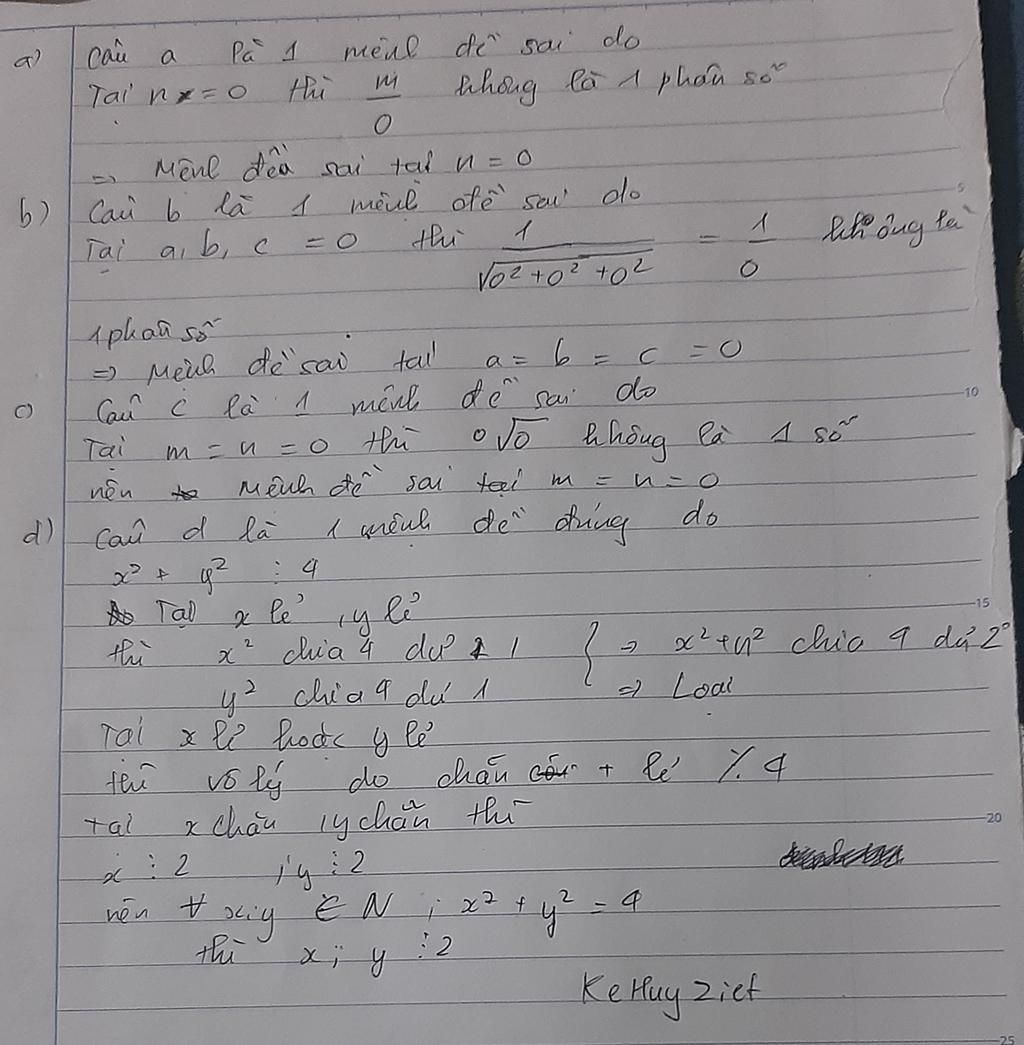 a) Câu a là 1 mệnh đề sai do
Tại n = 0 thì m/0 không là 1 phân số
=> Mệnh đề sai tại n = 0
b) Câu b là 1 mệnh đề sai do
Tại a, b, c = 0 thì 1/√0²+0²+0² = 1/0 không là
1 phân số
=> Mệnh đề sai tại a = b = c = 0
c) Câu c là 1 mệnh đề sai do
Tại m = n = 0 thì ⁰√0 không là 1 số
nên mệnh đề sai tại m = n = 0
d) Câu d là 1 mệnh đề đúng do
x² + y² ⋮ 4
Tại x lẻ, y lẻ
thì x² chia 4 dư 1 } => x²+y² chia 4 dư 2
y² chia 4 dư 1 => Loại
Tại x lẻ hoặc y lẻ
thì vô lý do chẵn + lẻ ⋮̸ 4
tại x chẵn, y chẵn thì
x ⋮ 2 ; y ⋮ 2
nên ∀ x;y ∈ N ; x² + y² = 4
thì x; y ⋮ 2
KeHuyZiet
5
10
15
20
25